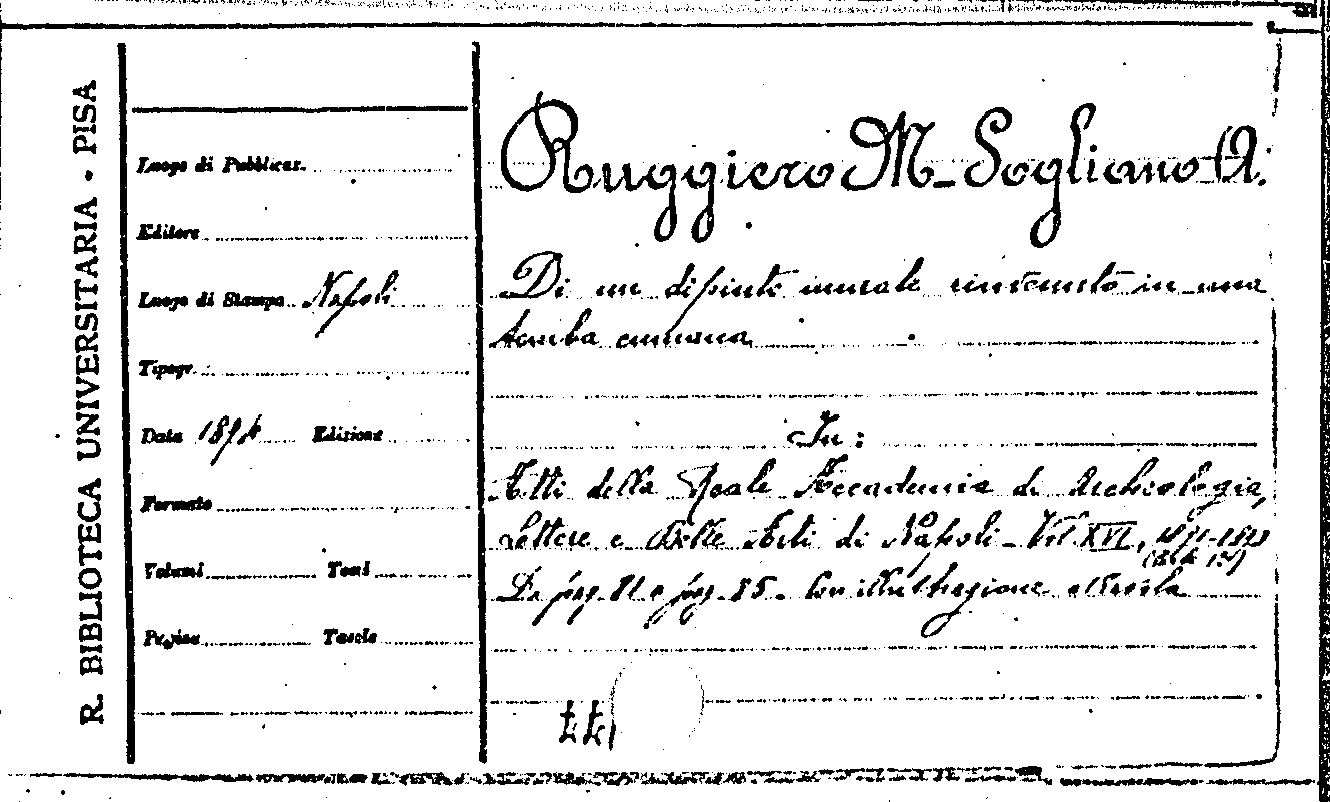 R. BIBLIOTECA UNIVERSITARIA - PISA
Luogo di Pubblicaz.
Editore
Luogo di Stampa Napoli
Tipogr.
Data 1894 Edizione
Formato
Volumi Tomi
Pagine Tavole
Ruggiero M - Sogliano A.
Di un dipinto murale rinvenuto in una
tomba cumana
In:
Atti della Reale Accademia di Archeologia,
Lettere e Belle Arti di Napoli - Vol. XVI, 1891-1893
Da pag. 81 a pag. 85 - Con illustrazione e tavola